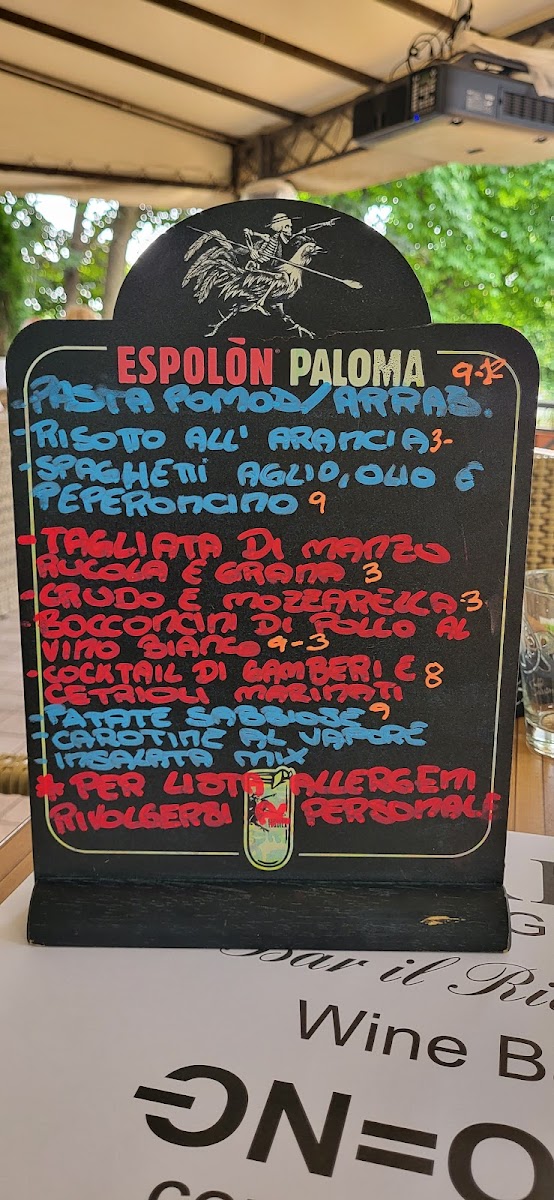 ESPOLÒN PALOMA 9-12
- PASTA POMOD/ARRAB.
- RISOTTO ALL' ARANCIA 3-
- SPAGHETTI AGLIO, OLIO E
PEPERONCINO 9
- TAGLIATA DI MANZO
RUCOLA E GRANA 3
- CRUDO E MOZZARELLA 3
- BOCCONCINI DI POLLO AL
VINO BIANCO 9-3
- COCKTAIL DI GAMBERI E 8
CETRIOLI MARINATI
- PATATE SABBIOSE 9
- CAROTINE AL VAPORE
- INSALATA MIX
* PER LISTA ALLERGENI
RIVOLGERSI AL PERSONALE
Bar il
Wine